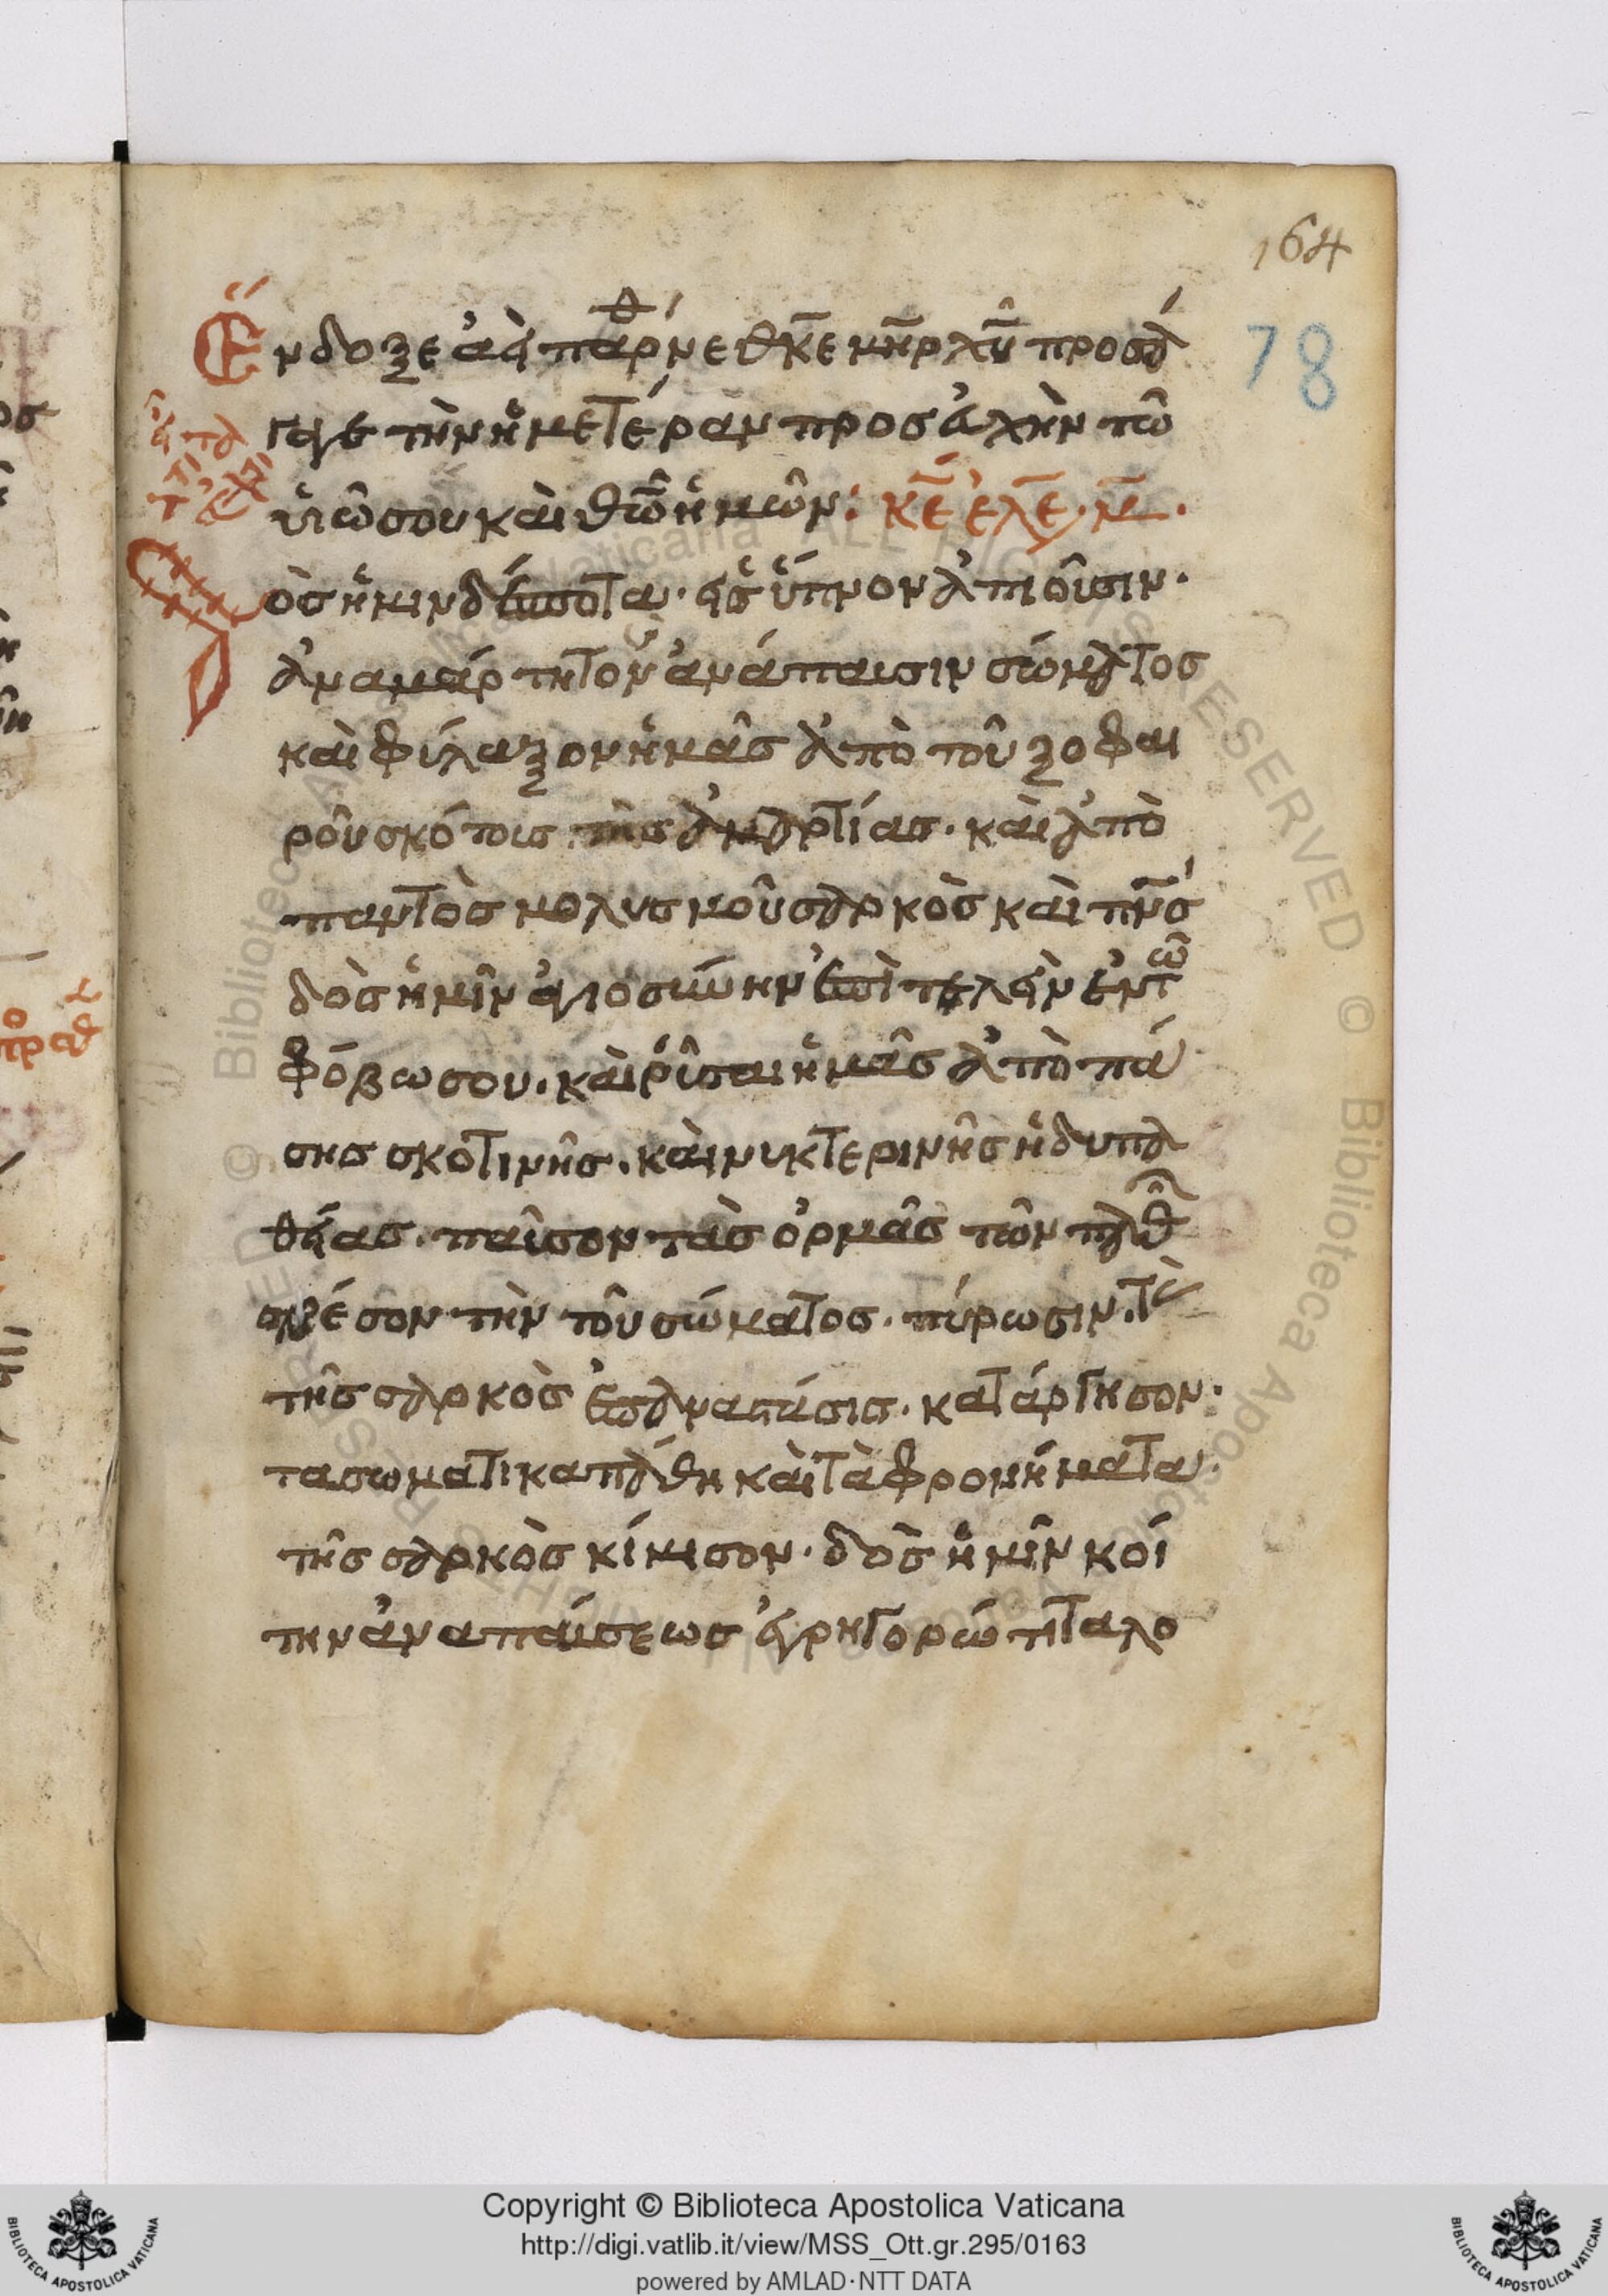 164
78
Ἔνδοξε ἀει παρθένε θκε μηρ χυ προσά
γαγε τὴν ἡμετέραν προσευχὴν τῶ
υἱῶ σου καὶ θῶ ἡμῶν: κε ἐλε· μ·
Δὸς ἡμιν δέσποτα· εἰς ὕπνον ἀπιοῦσιν·
ἀναμάρτητον ἀνάπαυσιν σώματος
καὶ φύλαξον ἡμᾶς ἀπὸ τοῦ ζοφαι
ροῦ σκότους τῆς ἁμαρτίας· καὶ ἀπὸ
παντὸς μολυσμοῦ σαρκὸς καὶ πνς
δὸς ἡμῖν ἁγιοσύνην ἐπιτελεῖν ἐν τῶ
φόβω σου· καὶ ρῦσαι ἡμᾶς ἀπὸ πά
σης σκοτινῆς· καὶ νυκτερινῆς ἡδυπα
θείας· παῦσον τὰς ὁρμᾶς τῶν παθῶν
σβέσον τὴν τοῦ σώματος· πύρωσιν· τὰς
τῆς σαρκὸς ἐπαναστάσις· κατάργησον·
τα σωματικα πάθη καὶ τὰ φρονήματα·
τῆς σαρκὸς κίμισον· δὸς ἡμῖν κοί
την ἀναπαύσεως ἐγρηγορώτητα λο
Copyright © Biblioteca Apostolica Vaticana
http://digi.vatlib.it/view/MSS_Ott.gr.295/0163
powered by AMLAD·NTT DATA